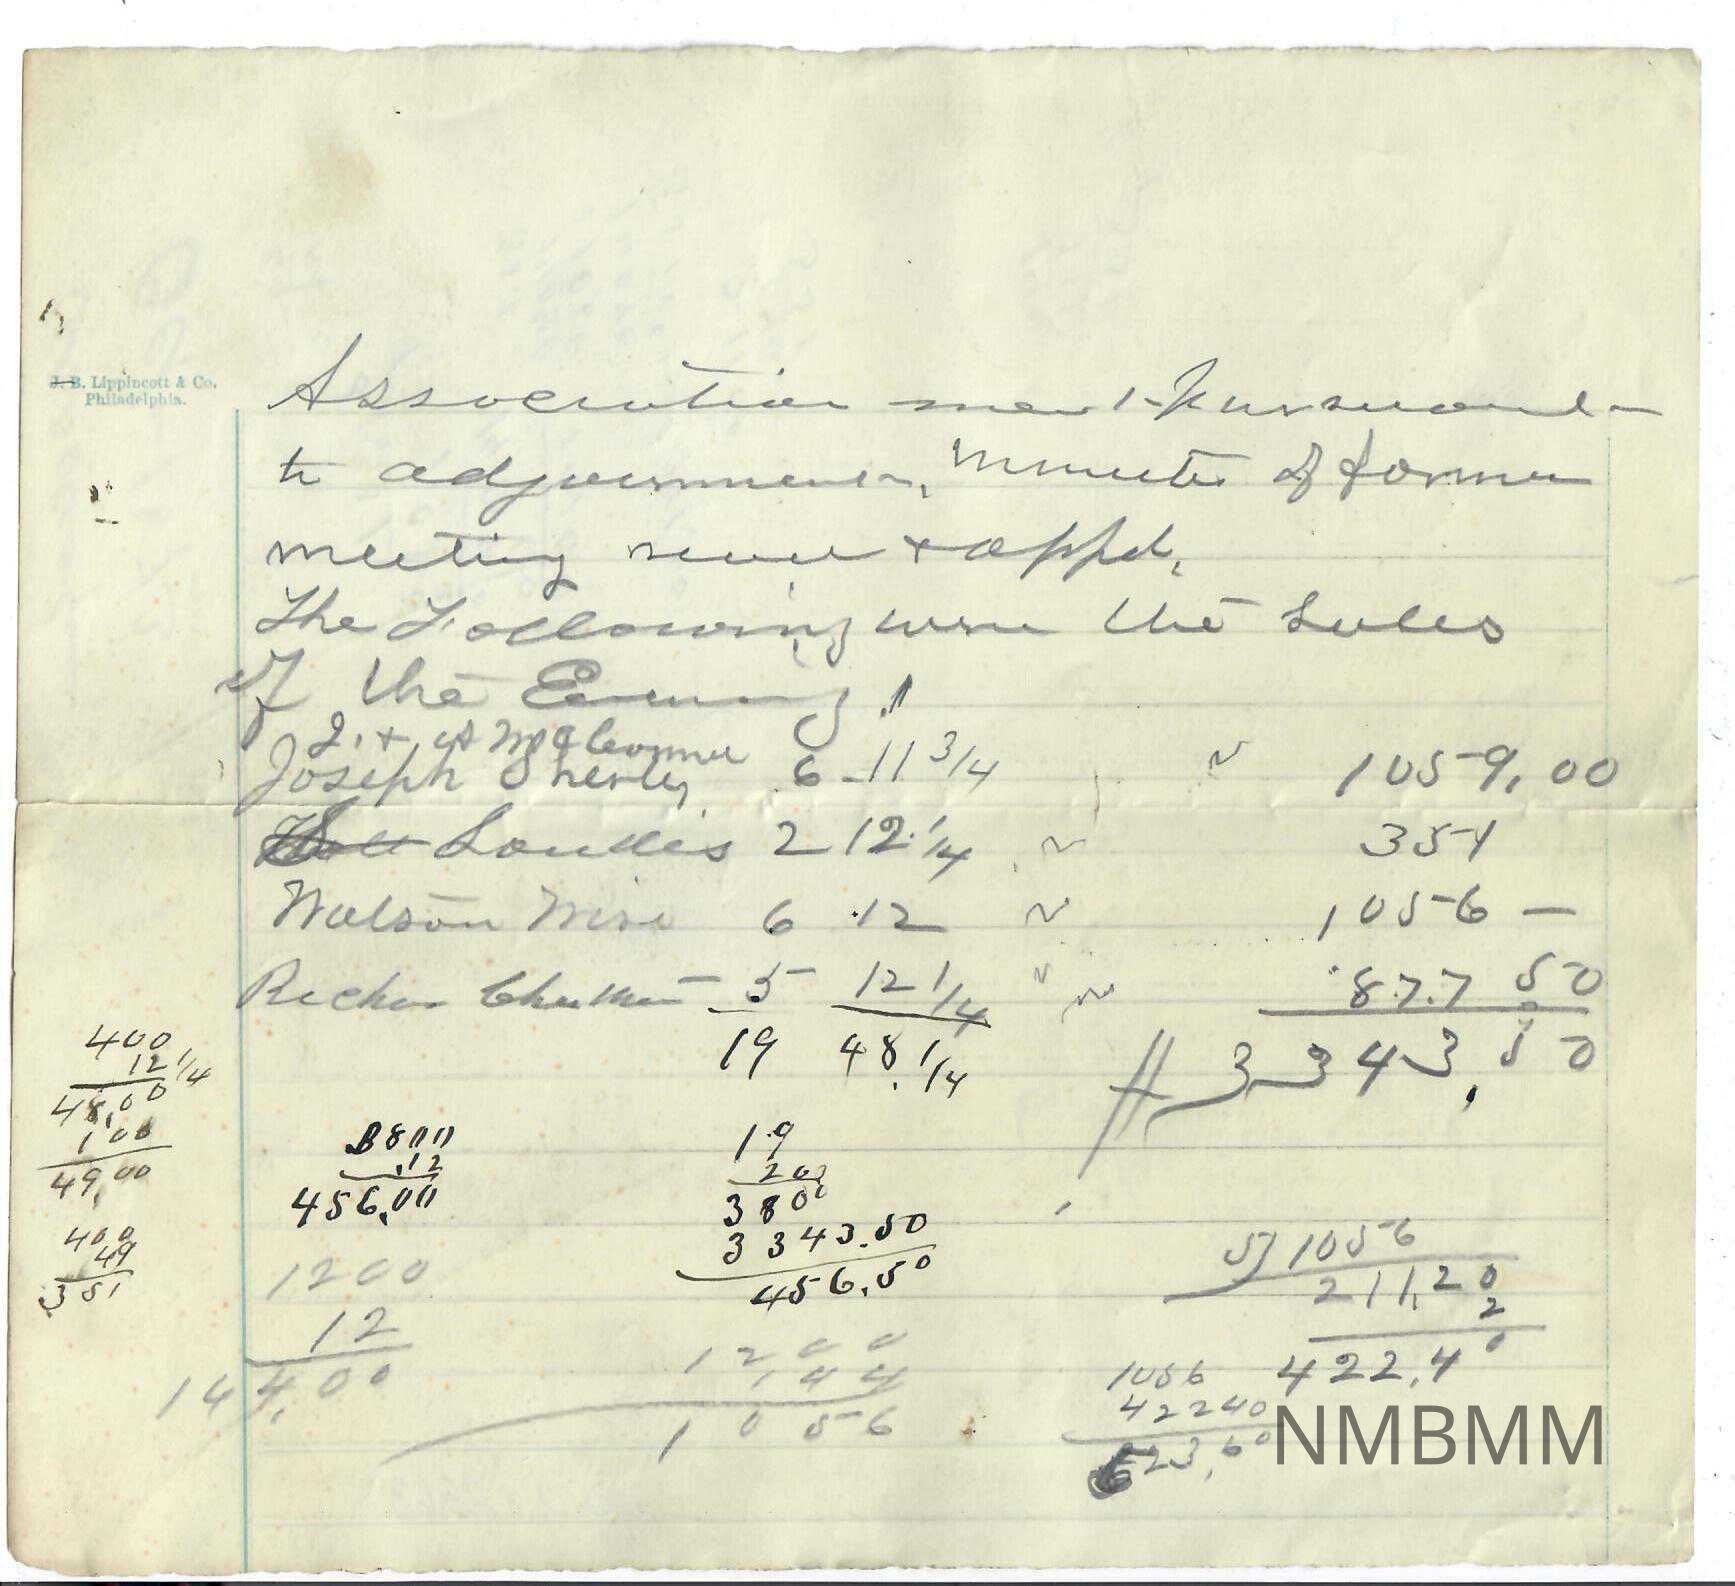 J. B. Lippincott & Co.
Philadelphia.
Association met Pursuant
to adjournment, Minutes of former
meeting read & appd,
The Following were the Sales
of the Evening
J. + A
Joseph Sherley 6 11 3/4 " 1059,00
Soulles 2 12 1/4 " 351
Watson Wire 6 12 " 1056 —
5 12 1/4 " " 877 50
19 48 1/4 # 3343,50
400
12 1/4
48,00
1 00
49,00
400
49
351
3800
.12
456,00
19
200
3800
3343.50
456,50
1200
12
144,00
1200
144
1056
5) 1056
211,20
2
422,40
1056
42240
623,60
NMBMM